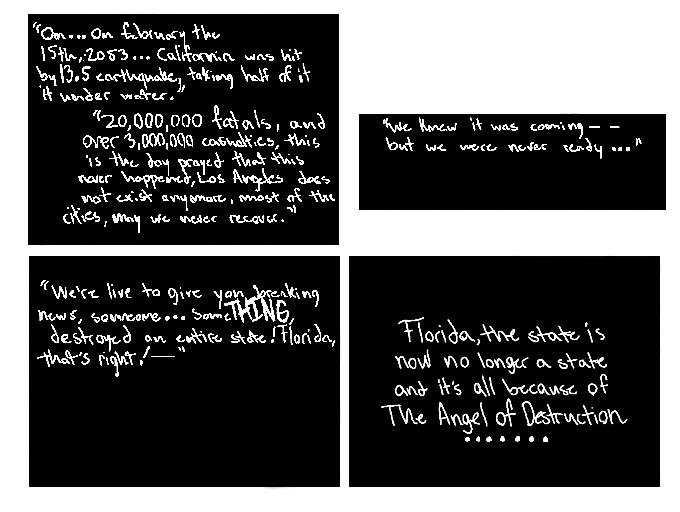 "On... on february the
15th, 2083... California was hit
by 13.5 earthquake, taking half of it
it under water."
"20,000,000 fatals, and
over 3,000,000 casualties, this
is the day prayed that this
never happened, Los Angeles does
not exist anymore, most of the
cities, may we never recover."
"We knew it was coming — —
but we were never ready ..."
"We're live to give you breaking
news, someone... some THING,
destroyed an entire state! Florida,
that's right! —"
Florida, the state is
now no longer a state
and it's all because of
The Angel of Destruction
.......